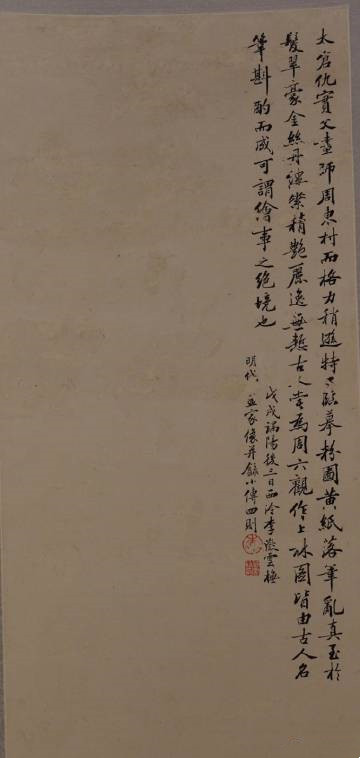 太倉仇實父畫師周東村而格力稍遜特工臨摹粉圖黃紙落筆亂真至於
髮翠豪金絲丹縷素精艷麗逸無慙古人嘗為周六觀作上林圖皆由古人名
筆斟酌而成可謂繪事之絕境也
戊戌端陽後三日西泠李 雲 
明代 畫家像并錄小傳四則